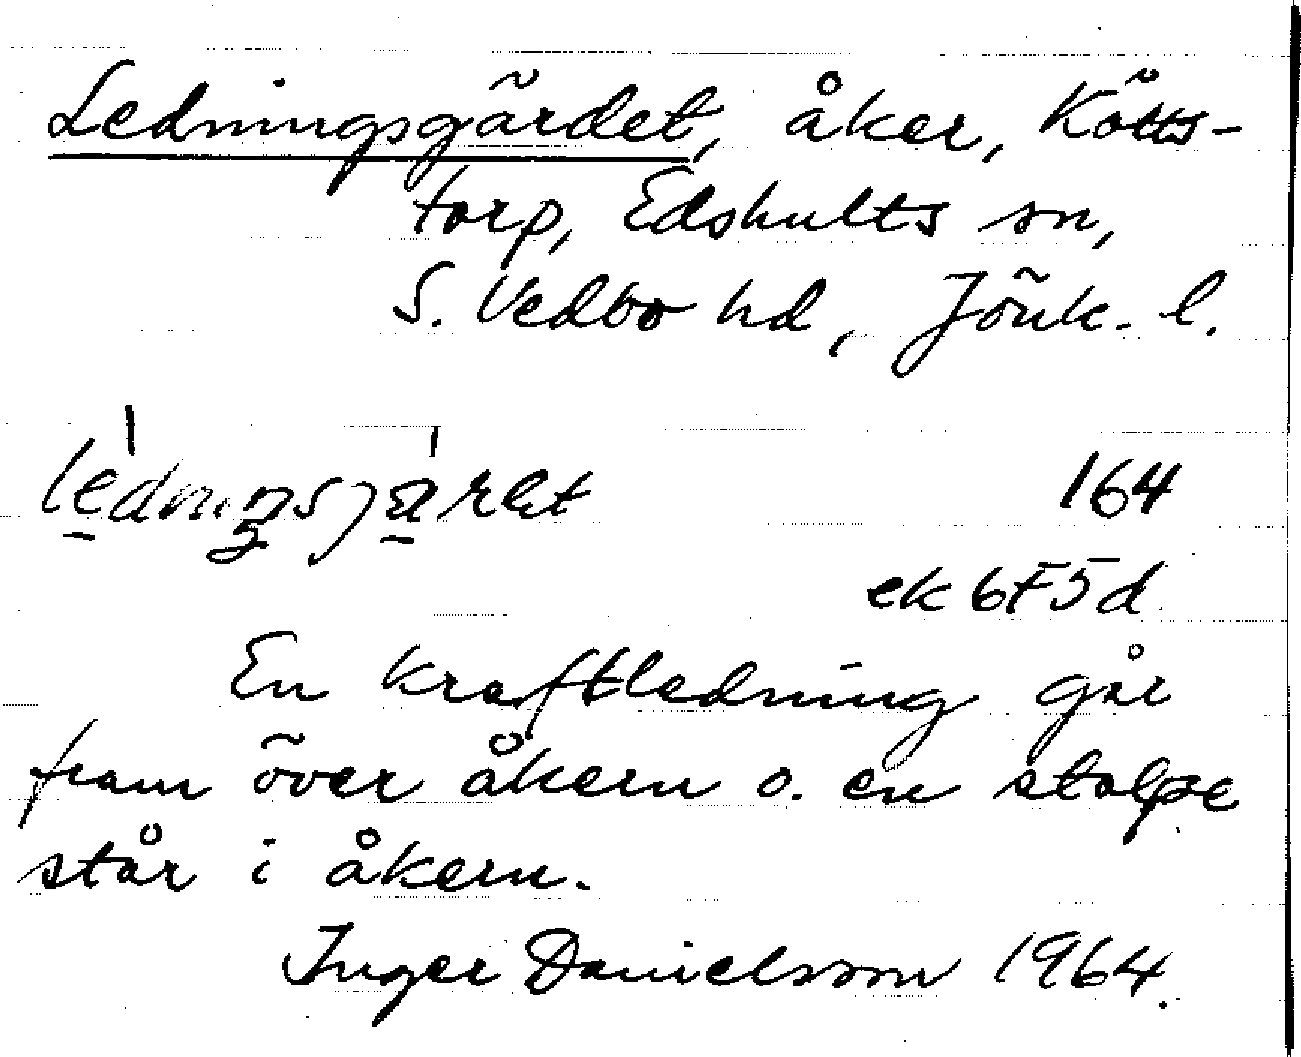 Ledningsgärdet, åker, Kötts-
torp, Edshults sn,
S. Vedbo hd, Jönk. l.
164
ek 6F5d
En kraftledning går
fram över åkern o. en stolpe
står i åkern.
Inger Danielsson 1964.